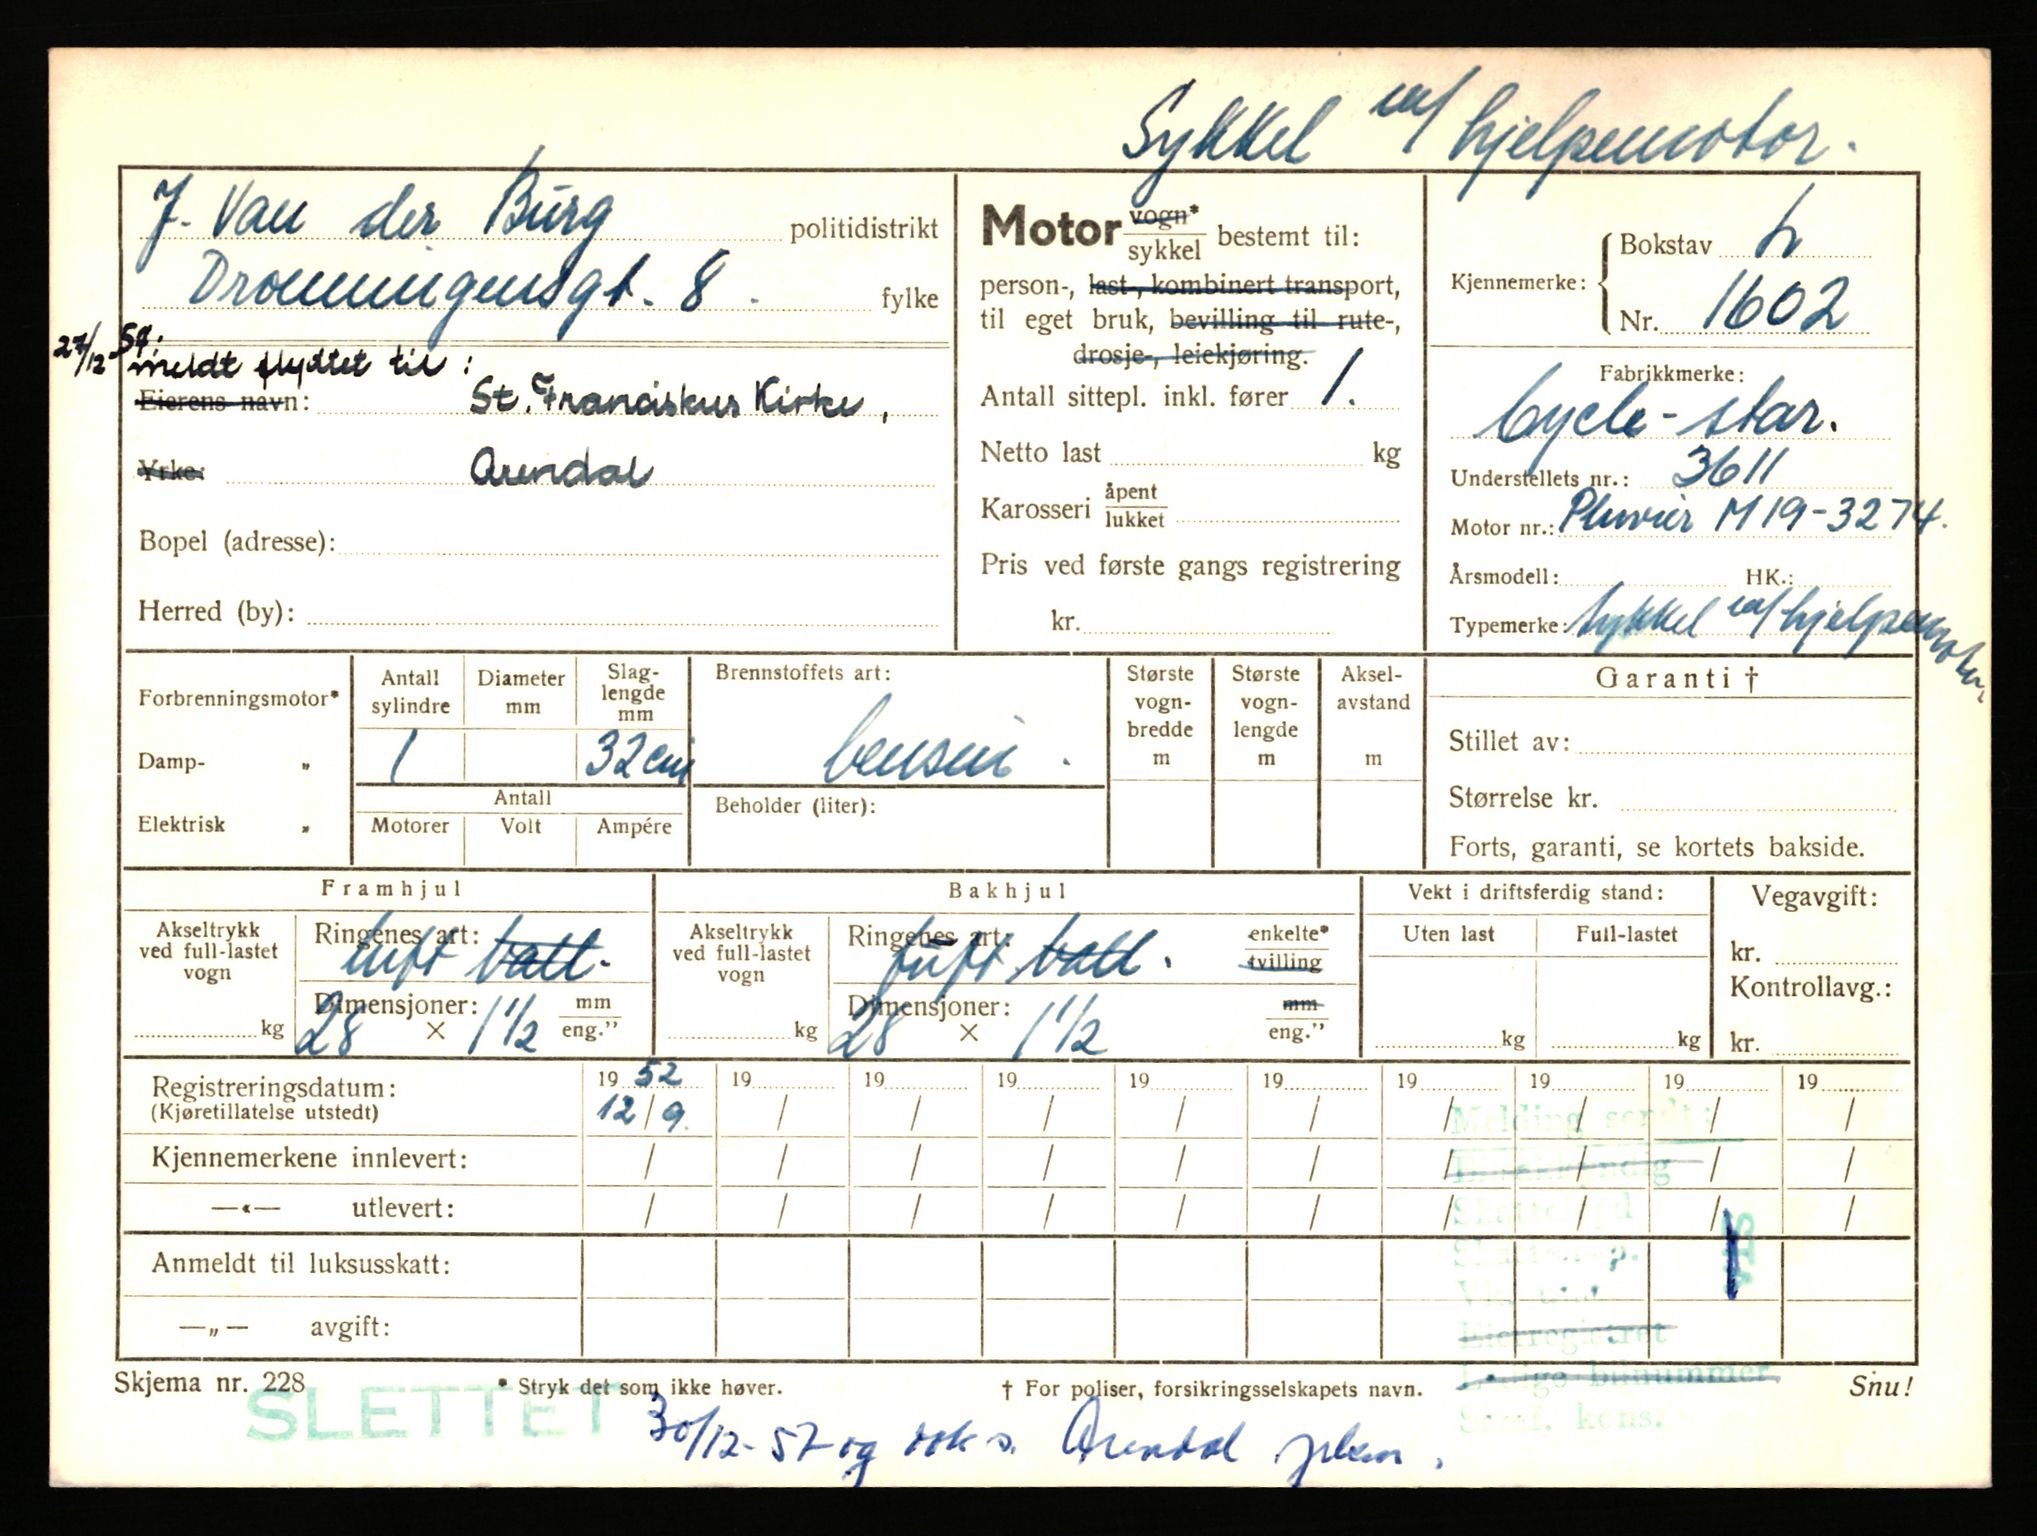 Sykkel m/ hjelpemotor.
J. Van der Burg politidistrikt
Dronningensgt. 8. fylke
27/12-54. meldt flydtet til:
Eierens navn: St. Franciskus Kirke,
Yrke: Arendal
Bopel (adresse):
Herred (by):
Motor vogn* sykkel bestemt til:
person-, last-, kombinert transport,
til eget bruk, bevilling til rute-,
drosje-, leiekjøring.
Antall sittepl. inkl. fører 1.
Netto last kg
Karosseri åpent lukket
Pris ved første gangs registrering
kr.
Kjennemerke: Bokstav
Nr. 1602
Fabrikkmerke:
Cycle-star.
Understellets nr.: 3611
Motor nr.: Pluvier M 19-3274.
Årsmodell: HK.:
Typemerke: Sykkel m/ hjelpemotor.
Forbrenningsmotor*
Damp- „
Elektrisk „
Antall sylindre
1
Diameter mm
Slag-lengde mm
32 cm
Antall
Motorer Volt Ampére
Brennstoffets art:
bensin.
Beholder (liter):
Største vogn-bredde m
Største vogn-lengde m
Aksel-avstand m
Garanti †
Stillet av:
Størrelse kr.
Forts, garanti, se kortets bakside.
Framhjul
Akseltrykk ved full-lastet vogn
kg
Ringenes art:
luft
Dimensjoner: mm
28 × 1 1/2 eng."
Bakhjul
Akseltrykk ved full-lastet vogn
kg
Ringenes art: enkelte*
luft tvilling
Dimensjoner: mm
28 × 1 1/2 eng."
Vekt i driftsferdig stand:
Uten last Full-lastet
kg kg
Vegavgift:
kr.
Kontrollavg.:
kr.
Registreringsdatum: 19 52 19 19 19 19 19 19 19 19 19
(Kjøretillatelse utstedt) 12/9. / / / / / / / / /
Kjennemerkene innlevert: / / / / / / / / / /
—«— utlevert: / / / / / / / / / /
Anmeldt til luksusskatt:
—„— avgift:
Melding sendt:
Eierregistret
Ledige bilnummer
Skjema nr. 228 * Stryk det som ikke høver. † For poliser, forsikringsselskapets navn. Snu!
SLETTET 30/12-57 og Arendal